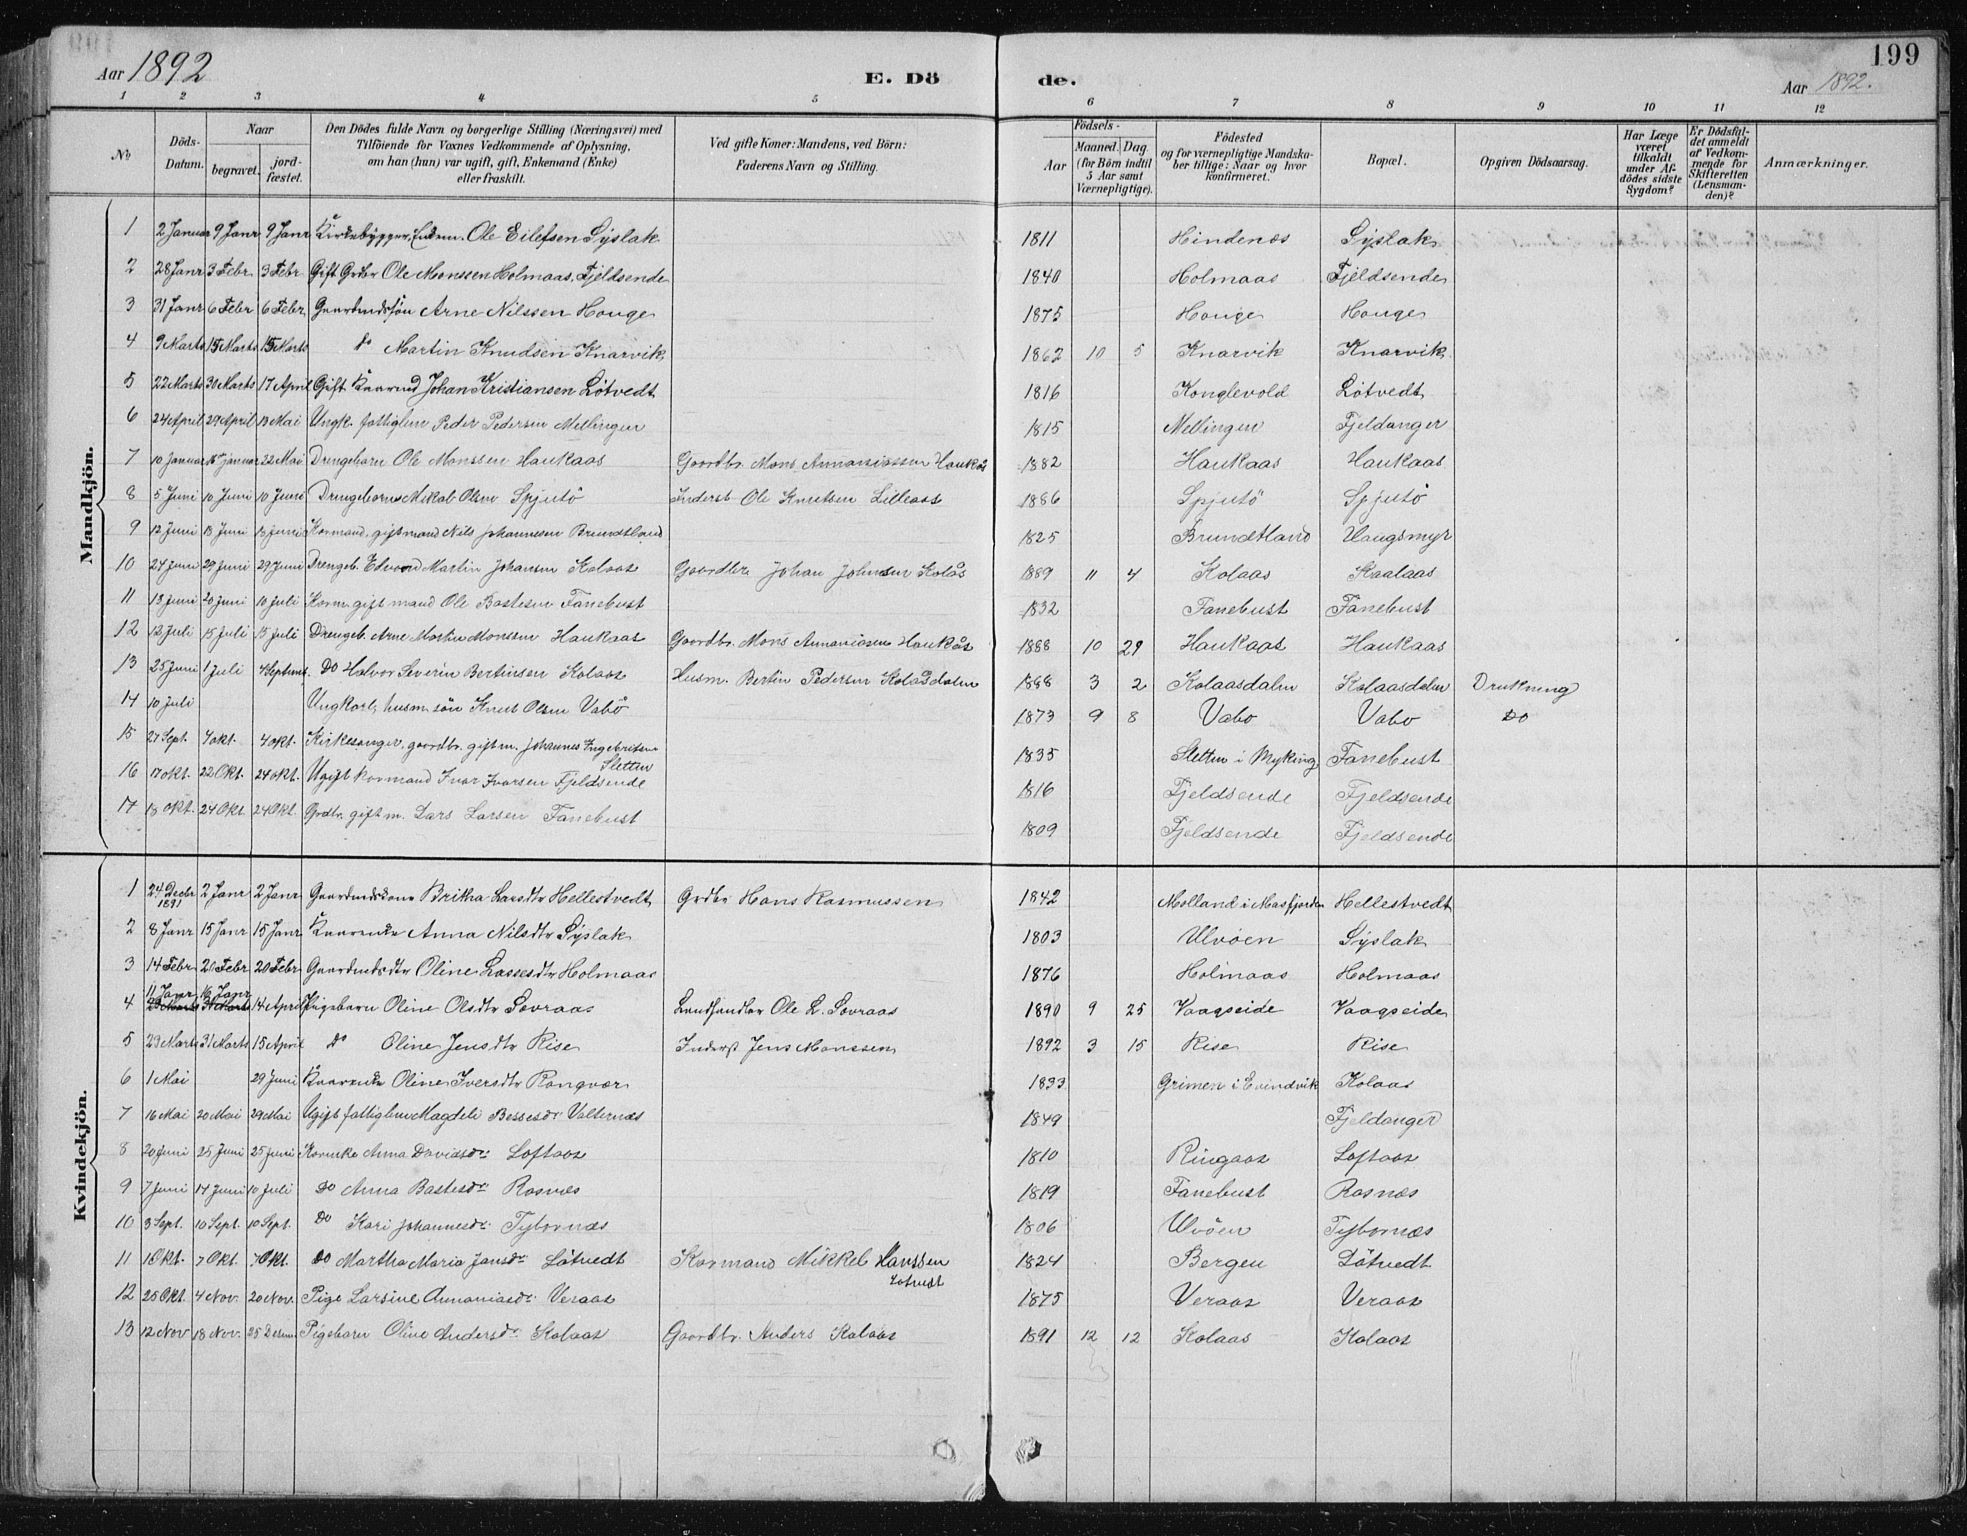 199
Aar 1892
E. Dö de.
Aar 1892.
1 2 3 4 5 6 7 8 9 10 11 12
No
Döds-Datum.
Naar
begravet.
jord-fæstet.
Den Dödes fulde Navn og borgerlige Stilling (Næringsvei) med
Tilföiende for Voxnes Vedkommende af Oplysning,
om han (hun) var ugift, gift, Enkemand (Enke)
eller fraskilt.
Ved gifte Koner: Mandens, ved Börn:
Faderens Navn og Stilling.
Födsels-
Aar
Maaned. Dag
(for Börn indtil
5 Aar samt
Værnepligtige).
Födested
og for værnepligtige Mandska-
ber tillige: Naar og hvor
konfirmeret.
Bopæl.
Opgiven Dödsaarsag.
Har Læge
været
tilkaldt
under Af-
dödes sidste
Sygdom?
Er Dödsfal-
det anmeldt
af Vedkom-
mende for
Skifteretten
(Lensman-
den)?
Anmærkninger.
Mandkjön.
1 2 Januar 9 Janr 9 Janr Kirkebygger, Enkem. Ole Eilefsen Syslak 1811 Hindenæs Syslak
2 28 Janr 3 Febr 3 Febr Gift Grdbr Ole Monssen Holmaas, Fjeldsende 1840 Holmaas Fjeldsende
3 31 Janr 6 Febr 6 Febr Gaardmdssön Arne Nilssen Houge 1875 Houge Houge
4 9 Marts 15 Marts 15 Marts Do Martin Knudsen Knarvik 1862 10 5 Knarvik Knarvik
5 22 Marts 30 Marts 17 April Gift Kaarmd Johan Kristiansen Lötvedt 1816 Konglevold Lötvedt
6 24 April 29 April 13 Mai Ungk. fattiglem Peder Pedersen Mellingen 1815 Mellingen Fjeldanger
7 10 Januar 15 januar 22 Mai Drengebarn Ole Monssen Haukaas Gaardbr. Mons Annaniassen Haukås 1882 Haukaas Haukaas
8 5 Juni 10 Juni 10 Juni Drengebarn Mikal Olsen Spjutö Inderst Ole Knutsen Lilleaas 1886 Spjutö Spjutö
9 12 Juni 18 Juni 18 juni Kormand, giftmand Nils Johannesen Brundtland 1825 Brundtland Haugsmyr
10 24 juni 29 juni 29 Juni Drengeb. Edvard Martin Johansen Kolaas Gaardbr. Johan Johnsen Kolås 1889 11 4 Kolaas Kaalaas
11 13 juni 20 juni 10 juli Korm. gift mand Ole Bastesen Fanebust 1832 Fanebust Fanebust
12 12 Juli 15 juli 15 juli Drengeb. Arne Martin Monssen Haukaas Gaardbr. Mons Annaniasen Haukås 1888 10 29 Haukaas Haukaas
13 25 Juni 1 Juli 4 Septemb. Do Halvor Severin Bertinsen Kolaas Husm. Bertin Pedersen Kolåsdalen 1888 3 2 Kolaasdalen Kolaasdalen Drukning
14 10 juli Ungkarl, husm. sön Knut Olsen Vabö 1873 9 8 Vabo Vabo Do
15 27 Sept. 4 okt. 4 okt. Kirkesanger, gaardbr. gift m. Johannes Ingebritsen Sletten 1835 Sletten i Myking Fanebust
16 17 okt. 22 Okt. 24 okt. Ugift kormand Ivar Ivarsen Fjeldsende 1816 Fjeldsende Fjeldsende
17 18 okt. 24 Okt. 24 Okt. Grdbr. gift m. Lars Larsen Fanebust 1809 Fjeldsende Fjeldsende
Kvindekjön.
1 24 Decbr 1891 2 Janr 2 Janr Gaardmdskone Britha Larsdtr Hellestvedt Grdbr Hans Rasmussen 1842 Molland i Masfjorden Hellestvedt
2 8 Janr 15 Janr 15 Janr Kaarenke Anna Nilsdtr Syslak 1803 Ulvöen Syslak
3 14 Febr 20 Febr 20 Febr Gaardmdsdtr Oline Lassesdtr Holmaas 1876 Holmaas Holmaas
4 11 Janr 16 Janr 14 April Pigebarn Oline Olsdtr Sovraas Landhandler Ole L. Sovraas 1890 9 25 Vaagseide Vaagseide
5 23 Marts 31 Marts 15 April Do Oline Jensdtr Rise Inderst Jens Monssen 1892 3 15 Rise Rise
6 1 Mai 29 Juni Kaarenke Oline Iversdtr Rongvær 1833 Grimen i Evindvik Kolaas
7 16 Mai 20 Mai 29 Mai Ugift fattiglem Magdeli Bessesdr Valternæs 1849 Fjeldanger
8 20 juni 25 Juni 25 juni Korenke Anna Davidsdr Loftaas 1810 Ringaas Loftaas
9 7 juni 14 Juni 10 juli Do Anna Bastesdr Rosnæs 1819 Fanebust Rosnæs
10 3 Sept. 10 Sept. 10 Sept. Do Kari Johannesdr Tybornæs 1806 Ulvöen Tybornæs
11 1 Okt. 7 Okt. 7 Okt. Do Martha Maria Jansdr Lötvedt Kormand Mikkel Hanssen Lötvedt 1824 Bergen Lötvedt
12 25 Okt. 4 Nov. 20 Nov. Pige Larsine Annaniasdr Veraas 1875 Veraas Veraas
13 12 Nov 18 Nov. 25 Desem. Pigebarn Oline Andersdr Kolaas Gaardbr. Anders Kolaas 1891 12 12 Kolaas Kolaas